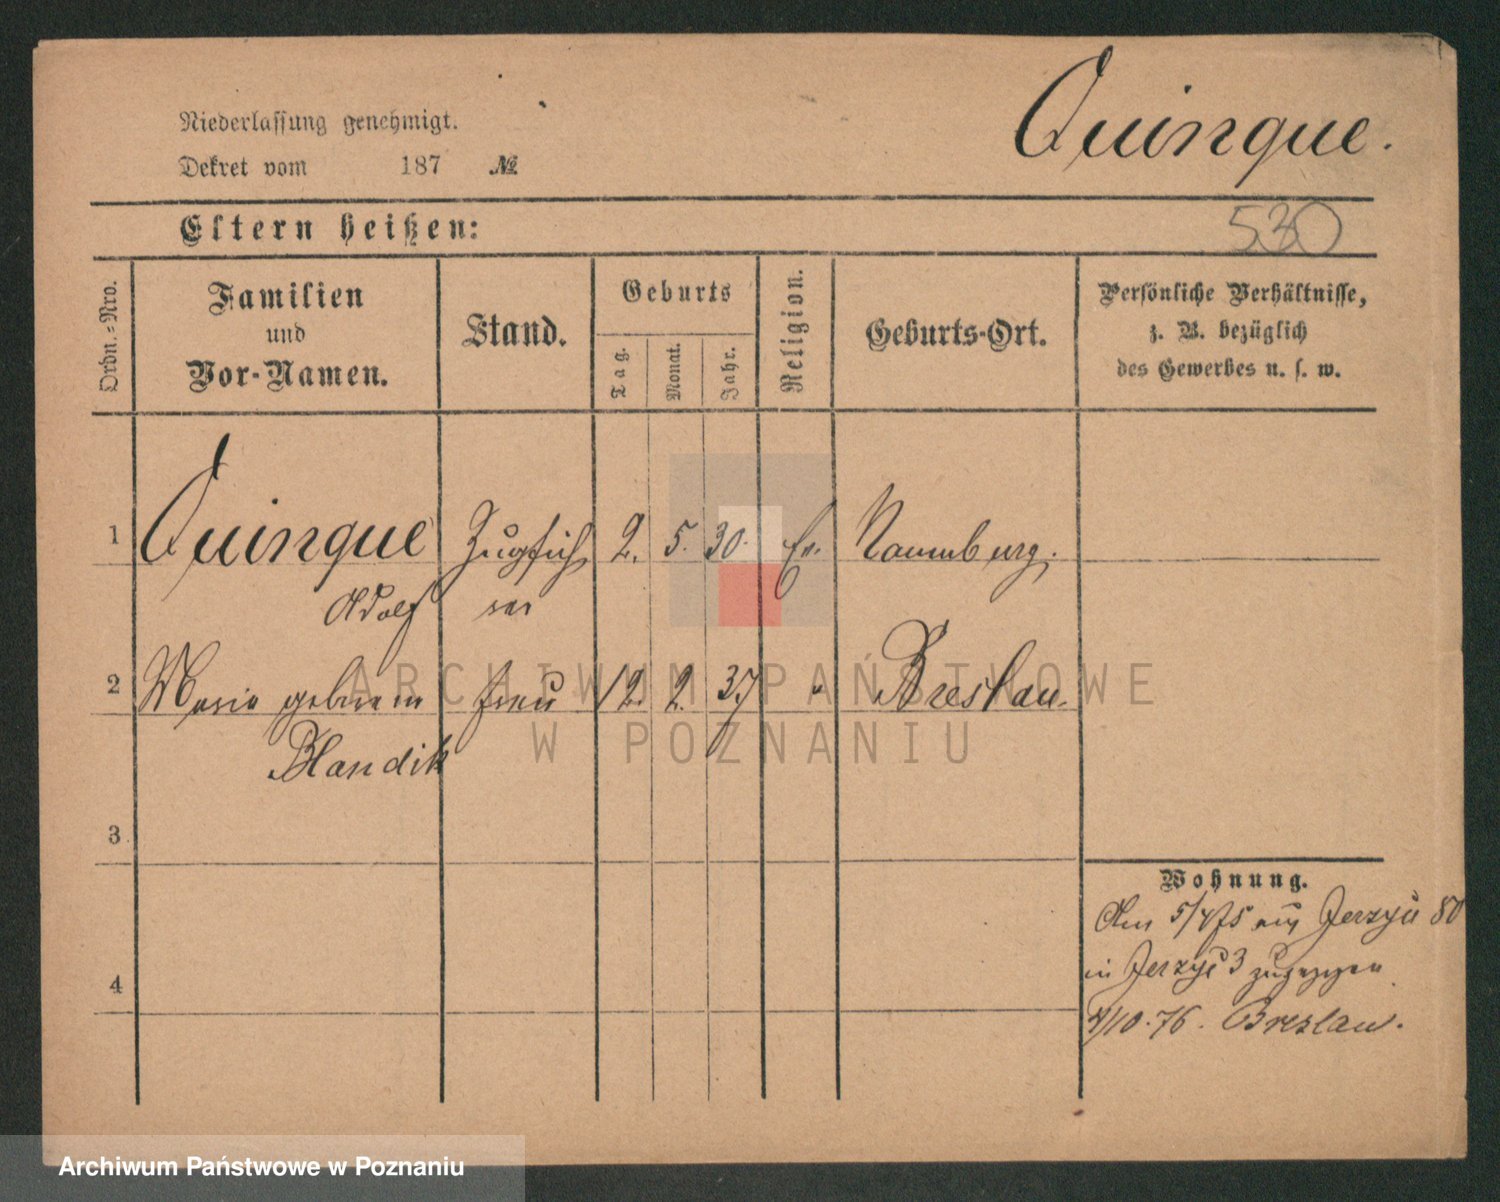 Quinque.
Niederlassung genehmigt.
Dekret vom 187 №
530
Eltern heißen:
Ordn.-Nro.
Familien
und
Vor-Namen.
Stand.
Geburts
Tag.
Monat.
Jahr.
Religion.
Geburts-Ort.
Persönliche Verhältnisse,
z. B. bezüglich
des Gewerbes u. s. w.
1 Quinque Zugfüh 2. 5. 30. Ev. Naumburg.
Adolf rer
2 Marie geborene Frau 12. 2. 37 " Breslau.
Blandik
3
4
Wohnung.
Am 5/4 75 aus Jerzyce 80
in Jerzyce 3 zugezogen
4/10. 76. Breslau.
ARCHIWUM PAŃSTWOWE
W POZNANIU
Archiwum Państwowe w Poznaniu